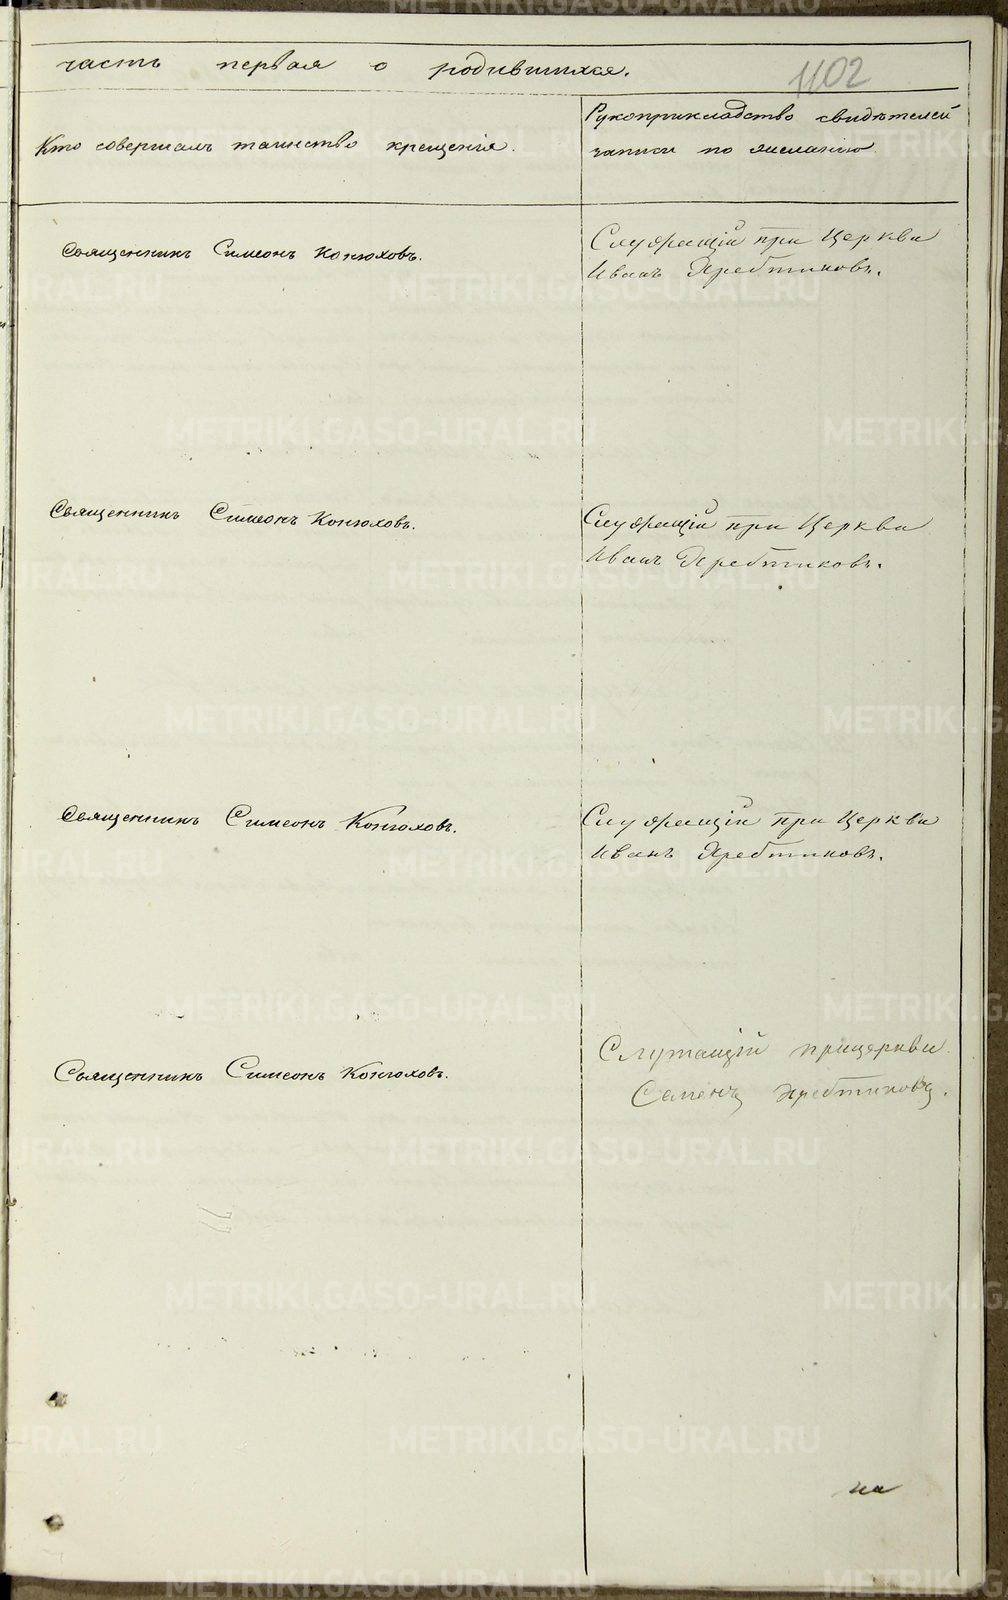 часть первая о родившихся.
1102
Кто совершалъ таинство крещенія.
Рукоприкладство свидѣтелей
записи по желанію
Священникъ Симеонъ Конюховъ.
Служащій при Церкви
Иванъ Жребтиковъ.
Священникъ Симеонъ Конюховъ.
Служащій при Церкви
Иванъ Жребтиковъ.
Священникъ Симеонъ Конюховъ.
Служащій при Церкви
Иванъ Жребтиковъ.
Священникъ Симеонъ Конюховъ.
Служащій прицеркви
Семенъ Жребтиковъ.
на
METRIKI.GASO-URAL.RU